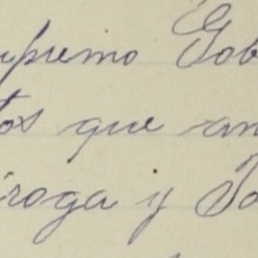 upremo Gob
tos que an
iroga y